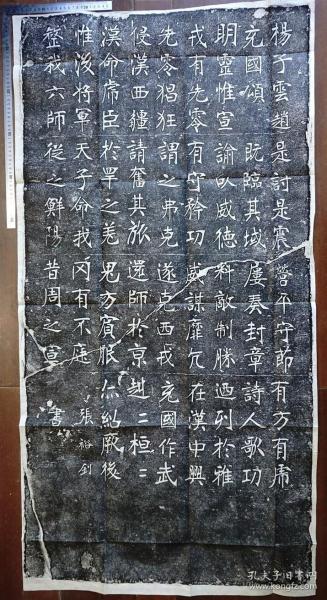 楊子雲趙是討是震營平守節有方有虎
充國頌 既臨其域屢奏封章詩人歌功
明靈惟宣諭以威德料敵制勝迺列於雅
戎有先零有守矜功威謀靡亢在漢中興
先零猖狂謂之弗克遂克西戎充國作武
侵漢西疆請奮其旅還師於京赳二桓二
漢命虎臣於罕之羌鬼方賓服亦紹厥後
惟後將軍天子命我罔有不庭 張裕釗
整我六師從之鮮陽昔周之宣 書
孔夫子旧书网